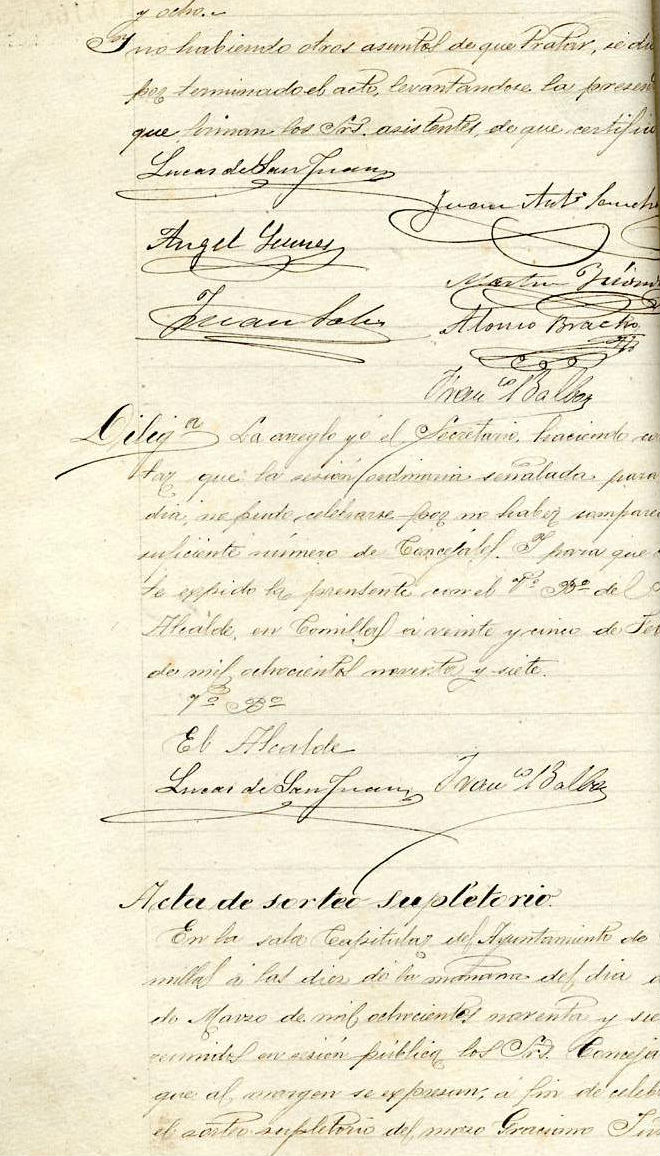 y ocho.
Y no habiendo otros asuntos de que tratar, se dió
por terminado el acto, levantandose la presen
que firman los Srs. asistentes, de que certifi
Lucas de San Juan
Juan Antº Sanch
Angel
Martin
Juan
Alonso Bracho
Franco Balbas
Diliga La arreglo yó el Secretario, haciendo con
tar que la sesión ordinaria señalada para
dia, no pudo celebrarse por no haber compare
suficiente número de Concejales. Y para que
se expido la prensente con el Vº Bº del
Alcalde, en Comillas á veinte y cinco de Feb
de mil ochocientos noventa y siete.
Vº Bº
El Alcalde
Lucas de San Juan Franco Balbas
Acta de sorteo supletorio.
En la sala Capitular del Ayuntamiento de
millas á las diez de la mañana del dia
de Marzo de mil ochocientos noventa y sie
reunidos en sesión pública los Srs. Conceja
que al margen se expresan, á fin de celeb
el sorteo supletorio del mozo Graciano